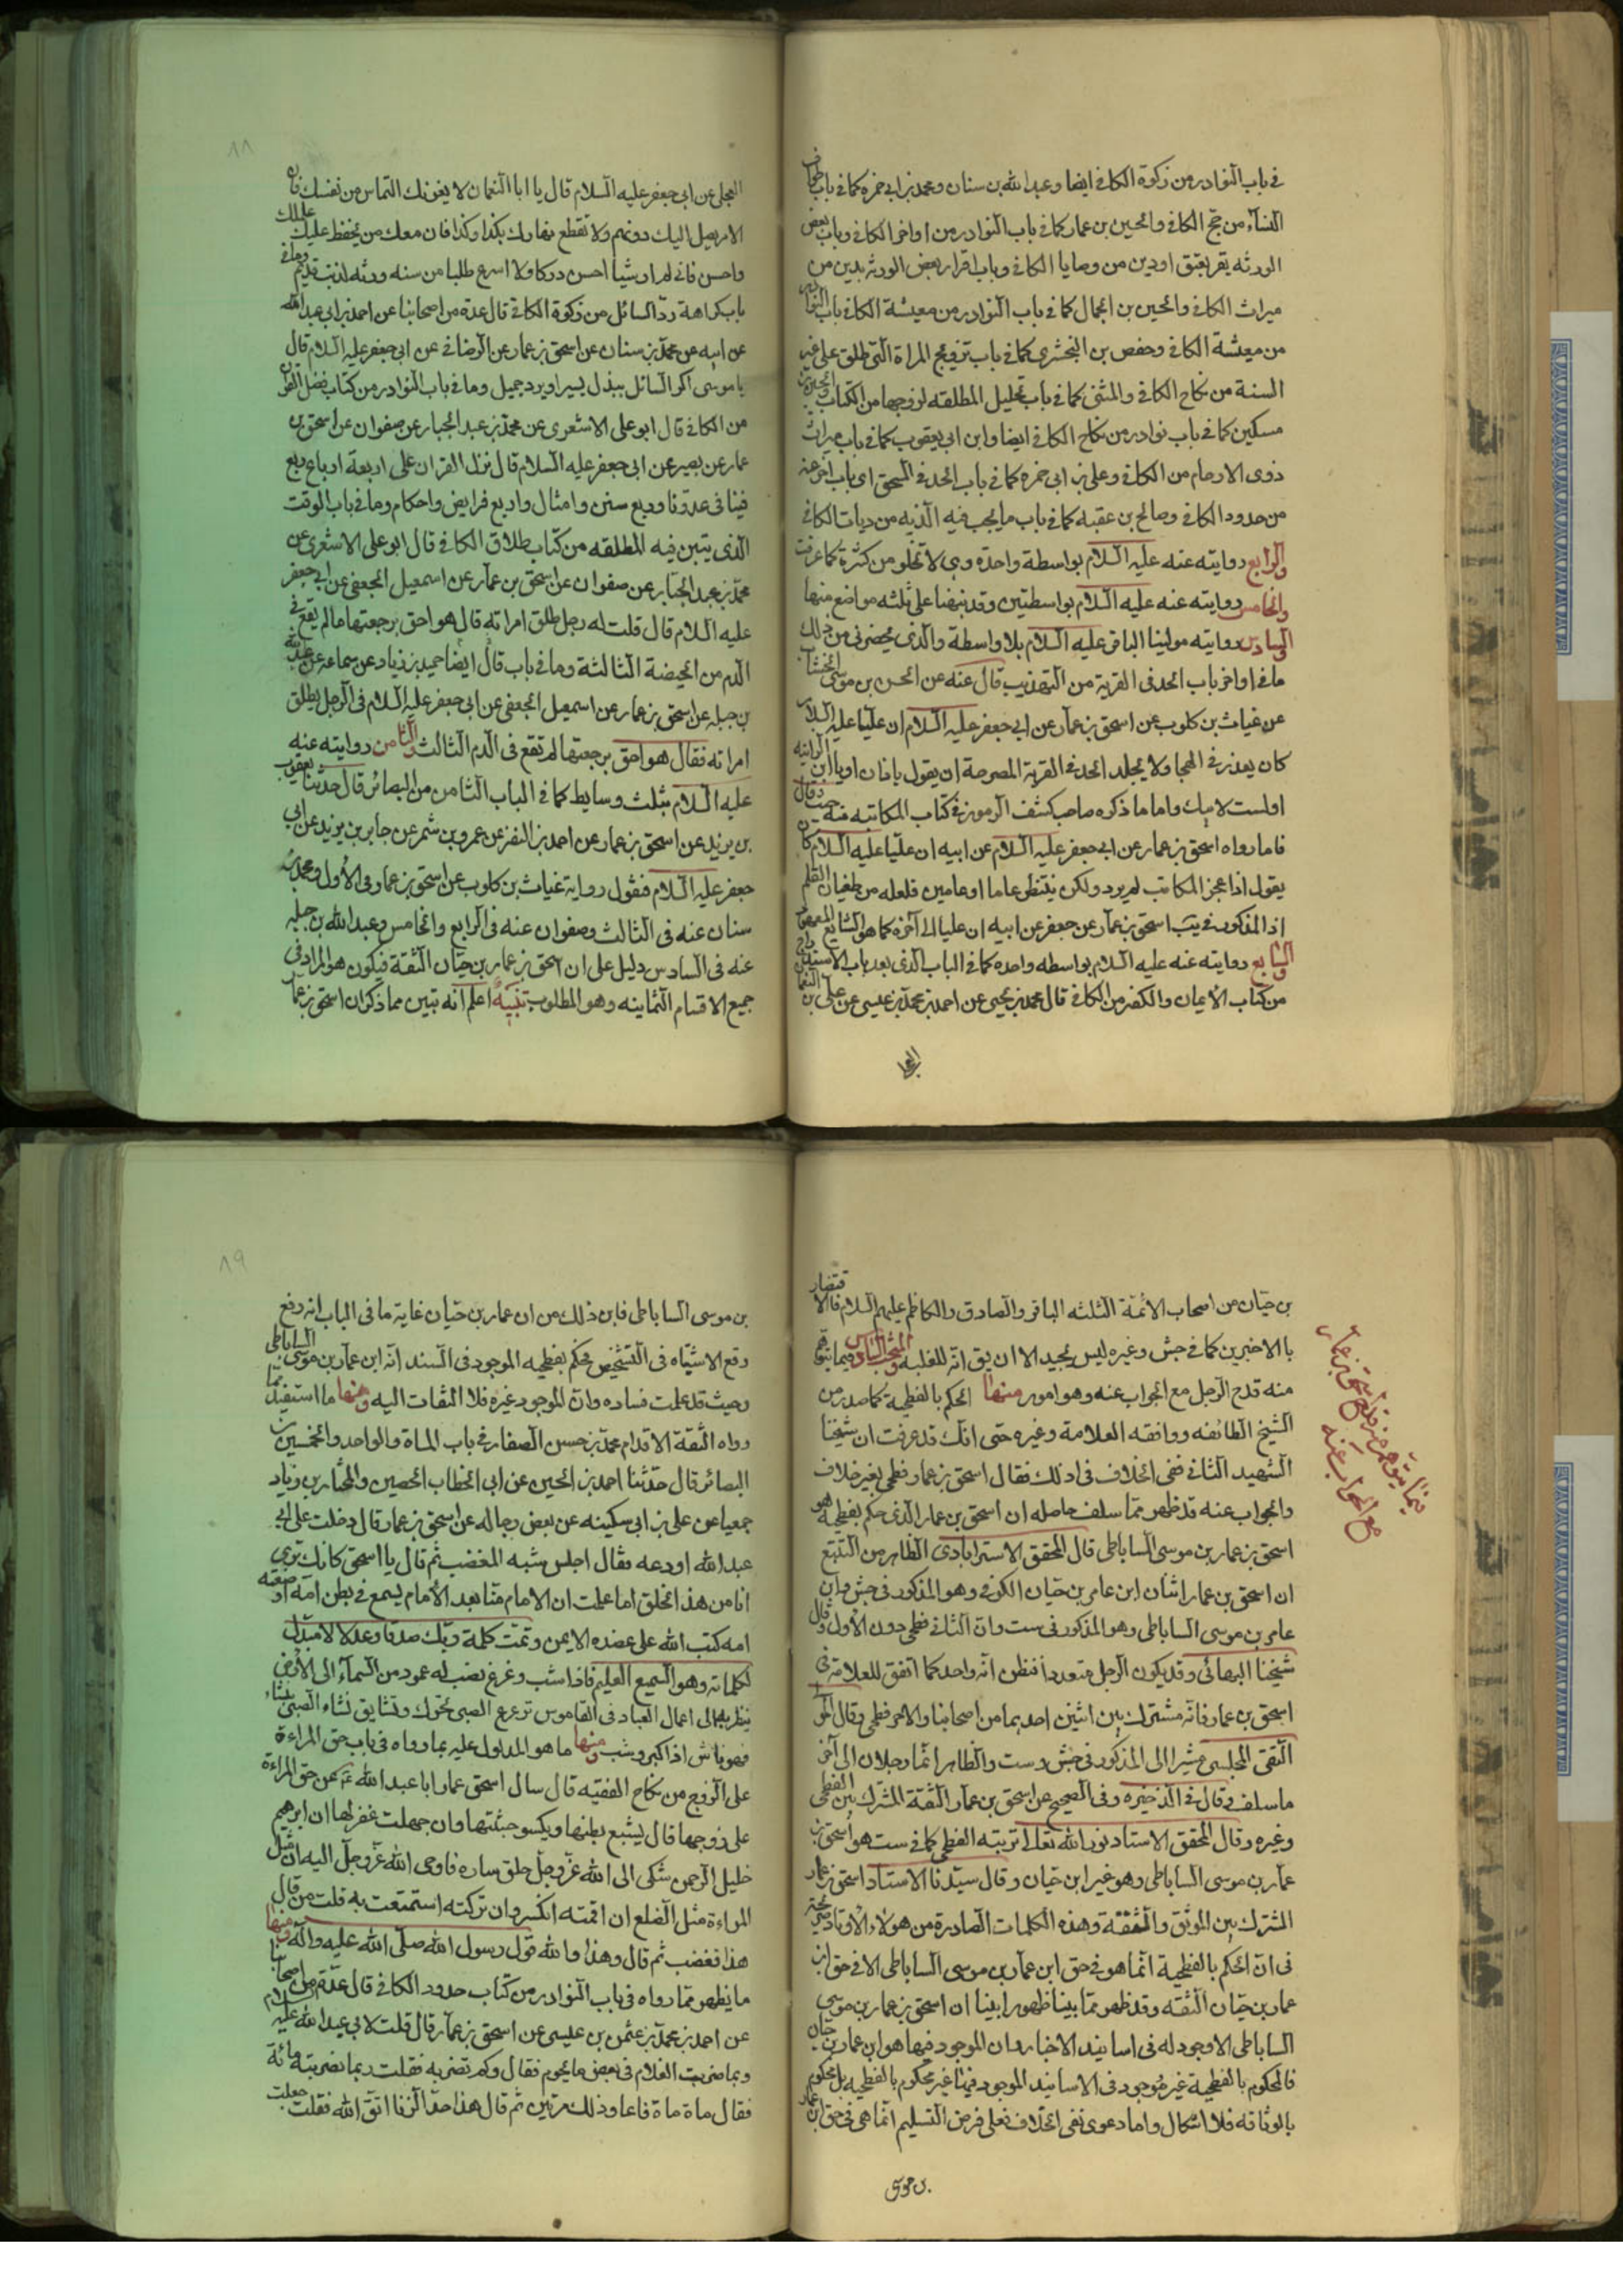 في باب النوادر من زكوة الكافي ايضا وعبد الله بن سنان ومحمد بن ابي حمزه كما في باب طواف
النساء من حج الكافي والحسين بن عمار كما في باب النوادر من اواخر الكافي وباب بعض
الورثه يقر بعتق او دين من وصايا الكافي وباب اقرار بعض الورثه بدين من
ميراث الكافي والحسين بن الجمال كما في باب النوادر من معيشة الكافي باب النوادر
من معيشة الكافي وحفص بن البختري كما في باب تزويج المراة التي تطلق على غير
السنة من نكاح الكافي والمثنى كما في باب تحليل المطلقه لزوجها من الكتاب والحسين بن
مسكين كما في باب نوادر من نكاح الكافي ايضا وابن ابي يعقوب كما في باب ميراث
ذوى الارحام من الكافي وعلى بن ابي حمزه كما في باب الحد في السحق اى باب اخر منه
من حدود الكافي وصالح بن عقبه كما في باب ما يجب فيه الديه من ديات الكافي
والرابع روايته عنه عليه السلام بواسطة واحدة وهي لا تخلو من كثرة كما عرفت
والخامس روايته عنه عليه السلام بواسطتين وقد نبهنا على ثلثه مواضع منها
والسادس روايته مولينا الباقر عليه السلام بلا واسطة والذى يحضرني من ذلك
ما في اواخر باب الحد في الفرية من التهذيب قال عنه عن الحسن بن موسى الخشاب
عن غياث بن كلوب عن اسحق بن عمار عن ابي جعفر عليه السلام ان عليا عليه السلام
كان يعذر في الهجا ولا يجلد الحد في الفرية المصرحة ان يقول يا زان او يا ابن الزانيه
او لست لابيك واما ما ذكره صاحب كشف الرموز في كتاب المكاتبه منه حيث قال
فاما رواه اسحق بن عمار عن ابي جعفر عليه السلام عن ابيه ان عليا عليه السلام كان
يقول اذا عجز المكاتب لم يرد ولكن ينتظر عاما او عامين فلعله من طغيان القلم
اذ المذكور في يب اسحق بن عمار عن جعفر عن ابيه ان عليا الى آخره كما هو الشايع المعهود
والسابع روايته عنه عليه السلام بواسطه واحده كما في الباب الذى بعد باب الاستدراج
من كتاب الايمان والكفر من الكافي قال محمد بن يحيى عن احمد بن محمد بن عيسى عن على بن النعمان
العجلى عن ابي جعفر عليه السلام قال يا ابا النعمان لا يغرنك الناس من نفسك فان
الامر يصل اليك دونهم ولا تقطع نهارك بكذا وكذا فان معك من يحفظ عليك عملك
واحسن فاني لم ار شيئا احسن دركا ولا اسرع طلبا من سنه ورثه لذنب قديم وما في
باب كراهة رد السائل من زكوة الكافي قال عدة من اصحابنا عن احمد بن ابي عبد الله
عن ابيه عن محمد بن سنان عن اسحق بن عمار عن الرضافي عن ابي جعفر عليه السلام قال
يا موسى اكرم السائل ببذل يسير او برد جميل وما في باب النوادر من كتاب فضل القران
من الكافي قال ابو على الاشعرى عن محمد بن عبد الجبار عن صفوان عن اسحق بن
عمار عن بصير عن ابي جعفر عليه السلام قال نزل القران على اربعة ارباع ربع
فينا في عدونا وربع سنن وامثال واربع فرايض واحكام وما في باب الوقت
الذى يتبين فيه المطلقه من كتاب طلاق الكافي قال ابو على الاشعرى عن
محمد بن عبد الجبار عن صفوان عن اسحق بن عمار عن اسمعيل الجعفي عن ابي جعفر
عليه السلام قال قلت له رجل طلق امراته قال هو احق برجعتها ما لم يقع في
الدم من الحيضة الثالثة وما في باب قال ايضا حميد بن زياد عن سماعه عن عبد الله
بن جبله عن اسحق بن عمار عن اسمعيل الجعفي عن ابي جعفر عليه السلام في الرجل يطلق
امراته فقال هو احق برجعتها لم تقع في الدم الثالث والثامن روايته عنه
عليه السلام بثلث وسايط كما في الباب الثامن من البصائر قال حدثنا يعقوب
بن يزيد عن اسحق بن عمار عن احمد بن النضر عن عمرو بن شمر عن جابر بن يزيد عن ابي
جعفر عليه السلام فنقول رواية غياث بن كلوب عن اسحق بن عمار في الاول ومحمد بن
سنان عنه في الثالث وصفوان عنه في الرابع والخامس وعبد الله بن جبله
عنه في السادس دليل على ان اسحق بن عمار بن حيان الثقة فيكون هو المراد في
جميع الاقسام الثمانيه وهو المطلوب تنبيه اعلم انه تبين مما ذكر ان اسحق بن عمار
بن حيان من اصحاب الائمة الثلثه الباقر والصادق والكاظم عليهم السلام فالاقتصار
بالاخيرين كما في جش وغيره ليس بجيد الا ان يق انه للغلبه والمبحث السادس فيما يتوهم
منه قدح الرجل مع الجواب عنه وهو امور منها الحكم بالفطحية كما صدر من
الشيخ الطائفه ووافقه العلامة وغيره حتى انك قد عرفت ان شيخنا
الشهيد الثاني نفى الخلاف في ذلك فقال اسحق بن عمار فطحى بغير خلاف
والجواب عنه قد ظهر مما سلف حاصله ان اسحق بن عمار الذى حكم بفطحيه هو
اسحق بن عمار بن موسى الساباطى قال المحقق الاسترابادى الظاهر من التتبع
ان اسحق بن عمار اثنان ابن عامر بن حيان الكوفي وهو المذكور في جش وابن
عامر بن موسى الساباطى وهو المذكور في ست وان الثاني فطحى دون الاول وقال
شيخنا البهائى وقد يكون الرجل متعددا فيظن انه واحد كما اتفق للعلامة في
اسحق بن عمار فانه مشترك بين اثنين احديهما من اصحابنا والاخر فطحى وقال المولى
التقى المجلسى مشيرا الى المذكور في جش وست والظاهر انهما رجلان الى آخر
ما سلف وقال في الذخيره وفي الصحيح عن اسحق بن عمار الثقة المشترك بين الفطحى
وغيره وقال المحقق الاستاد نور الله تعالى تربته الفطحى كما في ست هو اسحق بن
عمار بن موسى الساباطى وهو غير ابن حيان وقال سيدنا الاستاد اسحق بن عمار
المشترك بين الموثق والثقة وهذه الكلمات الصادرة من هؤلاء الاوتاد صريحة
في ان الحكم بالفطحية انما هو في حق ابن عمار بن موسى الساباطى لا في حق ابن
عمار بن حيان الثقه وقد ظهر مما بينا ظهورا بينا ان اسحق بن عمار بن موسى
الساباطى لا وجود له في اسانيد الاخبار وان الموجود فيها هو ابن عمار بن حيان
فالمحكوم بالفطحية غير موجود في الاسانيد الموجود فيها غير محكوم بالفطحيه بل محكوم
بالوثاقه فلا اشكال واما دعوى نفى الخلاف فعلى فرض التسليم انما هي في حق ابن عمار
بن موسى
فيما يتوهم منه قدح اسحق بن عمار
مع الجواب عنه
٨٩
بن موسى الساباطى فاين ذلك من ان عمار بن حيان غاية ما في الباب انه رفع
وقع الاشتباه في التشخيص فحكم بفطحيه الموجود في السند انه ابن عمار بن موسى الساباطى
وحيث قد علمت فساده وان الموجود غيره فلا التفات اليه ومنها ما استفيد مما
رواه الثقة الاقدام محمد بن حسن الصفار في باب الماة والواحد والخمسين من
البصائر قال حدثنا احمد بن الحسين عن ابي الخطاب الحصين والمختار بن زياد
جمعيا عن على بن ابي سكينه عن بعض رجاله عن اسحق بن عمار قال دخلت على ابي
عبد الله اودعه فقال اجلس شبه المغضب ثم قال يا اسحق كانك ترى
انا من هذا الخلق اما علمت ان الامام منا بعد الامام يسمع في بطن امه او ضعته
امه كتب الله على عضده الايمن وتمت كلمة ربك صدقا وعدلا لا مبدل
لكلماته وهو السميع العليم فاذا شب وترعرع نصب له عمود من السماء الى الارض
ينظر به الى اعمال العباد في القاموس ترعرع الصبى تحرك ونشا يق نشاء الصبى ينشاء
فهو ناش اذا كبر وشب ومنها ما هو المدلول عليه بما رواه في باب حق المراءة
على الزوج من نكاح الفقيه قال سال اسحق عمار ابا عبد الله ع عن حق المراءة
على زوجها قال يشبع بطنها ويكسو جثتها وان جهلت غفر لها ان ابرهيم
خليل الرحمن شكى الى الله عز وجل خلق ساره فاوحى الله عز وجل اليه ان مثل
المراءة مثل الضلع ان اقمته انكسر وان تركته استمتعت به قلت من قال
هذا فغضب ثم قال وهذا والله قول رسول الله صلى الله عليه وآله ومنها
ما يظهر مما رواه في باب النوادر من كتاب حدود الكافي قال عدة من اصحابنا
عن احمد بن محمد بن عثمن بن عيسى عن اسحق بن عمار قال قلت لابي عبد الله عليه السلام
ربما ضربت الغلام في بعض ما يجرم فقال وكم تضربه فقلت ربما ضربته مائة
فقال ماة ماة فاعاد ذلك مرتين ثم قال هذا حد الزنا اتق الله فقلت جعلت